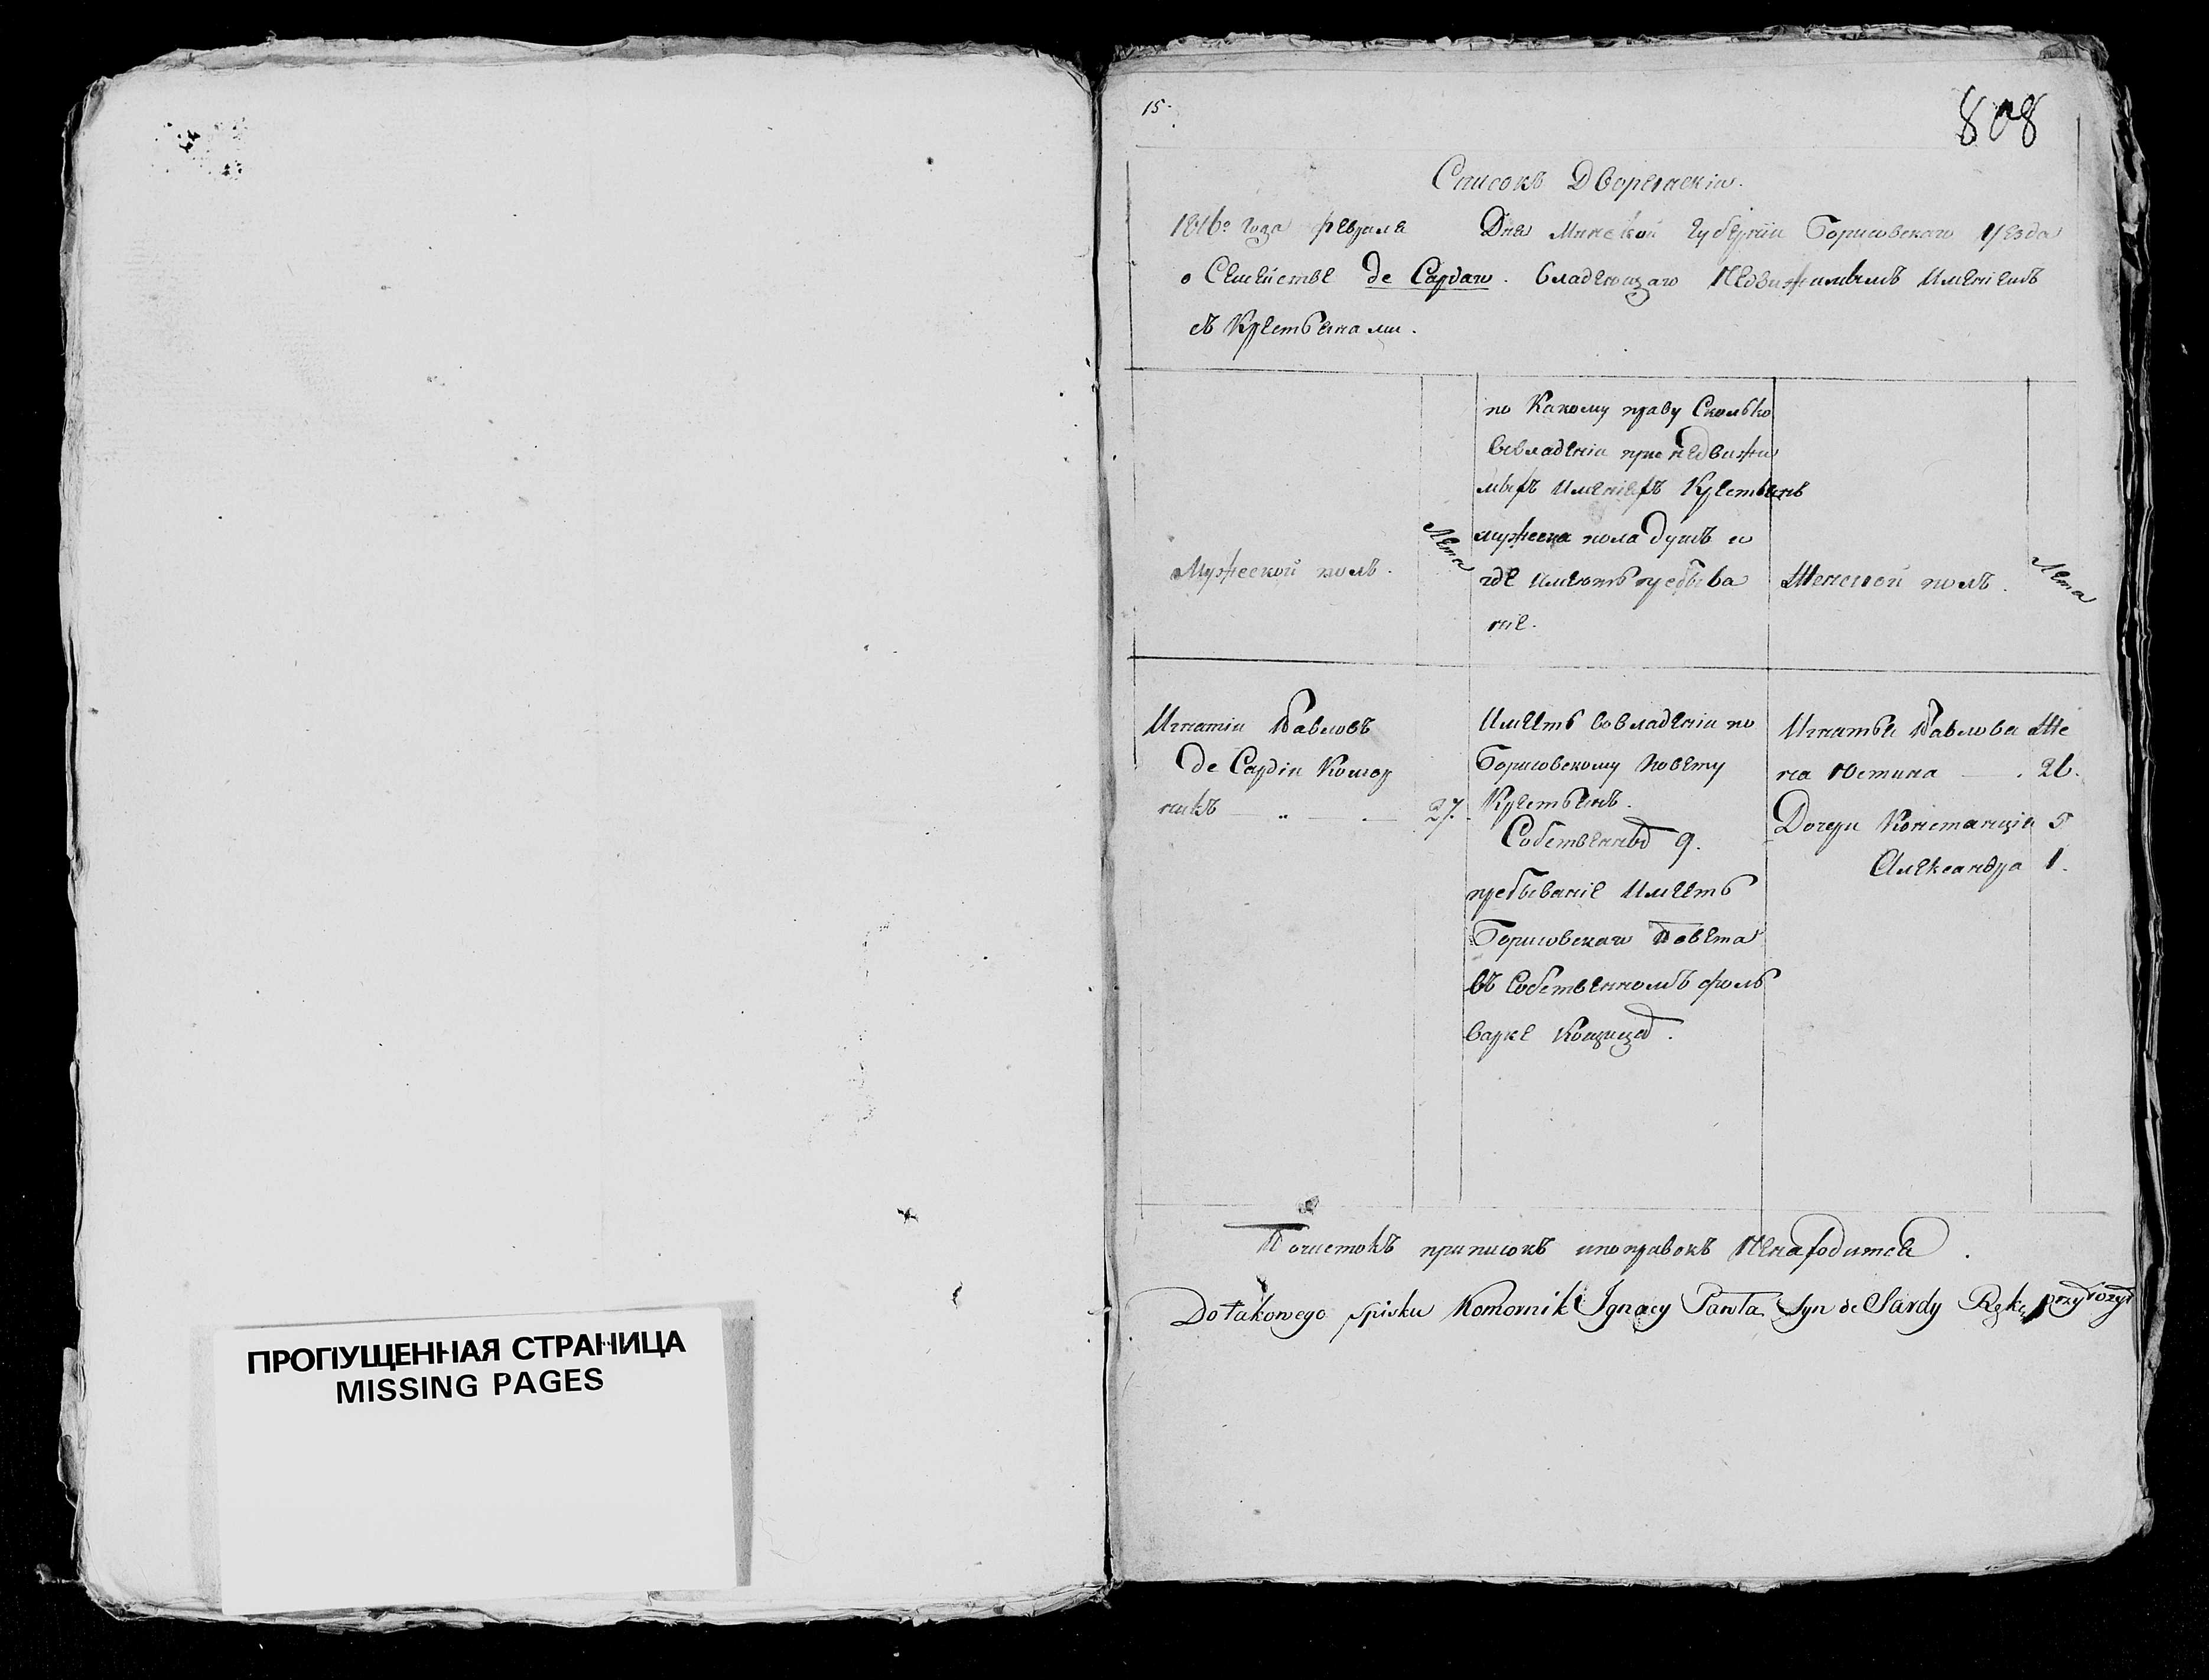 ПРОПУЩЕННАЯ СТРАНИЦА
MISSING PAGES
15.
808
Списокъ Дворянскiй.
1816го года февраля Дня Минской Губернiи Борисовского Уезда
о Семействе де Сардаго. Владеющаго Недвижимымъ Имениемъ
съ Крестьянами.
Мужеской полъ.
Лета
по Какому праву Сколько
вовладенiи при недвижи
мыхъ именiехъ Крестьянъ
мужеска пола душъ и
где имеютъ пребыва
ние.
Женской полъ.
Лета
Игнатiй Павловъ
де Сардiи Комор
никъ 27.
Имеетъ вовладенiи по
Борисовскому Повету
Крестьянъ.
Собственных 9.
пребыванiе Имеетъ
Борисовскаго Повета
въ Собственномъ фоль
варке
Игнатья Павлова Же
на Юстина 26.
Дочери Констанцiя 5
Александра 1.
Почистокъ приписокъ ипоправокъ Ненаходится.
Do takowego spisku Komornik Ignacy Pawła Syn de Sardy Rękę przyłożył